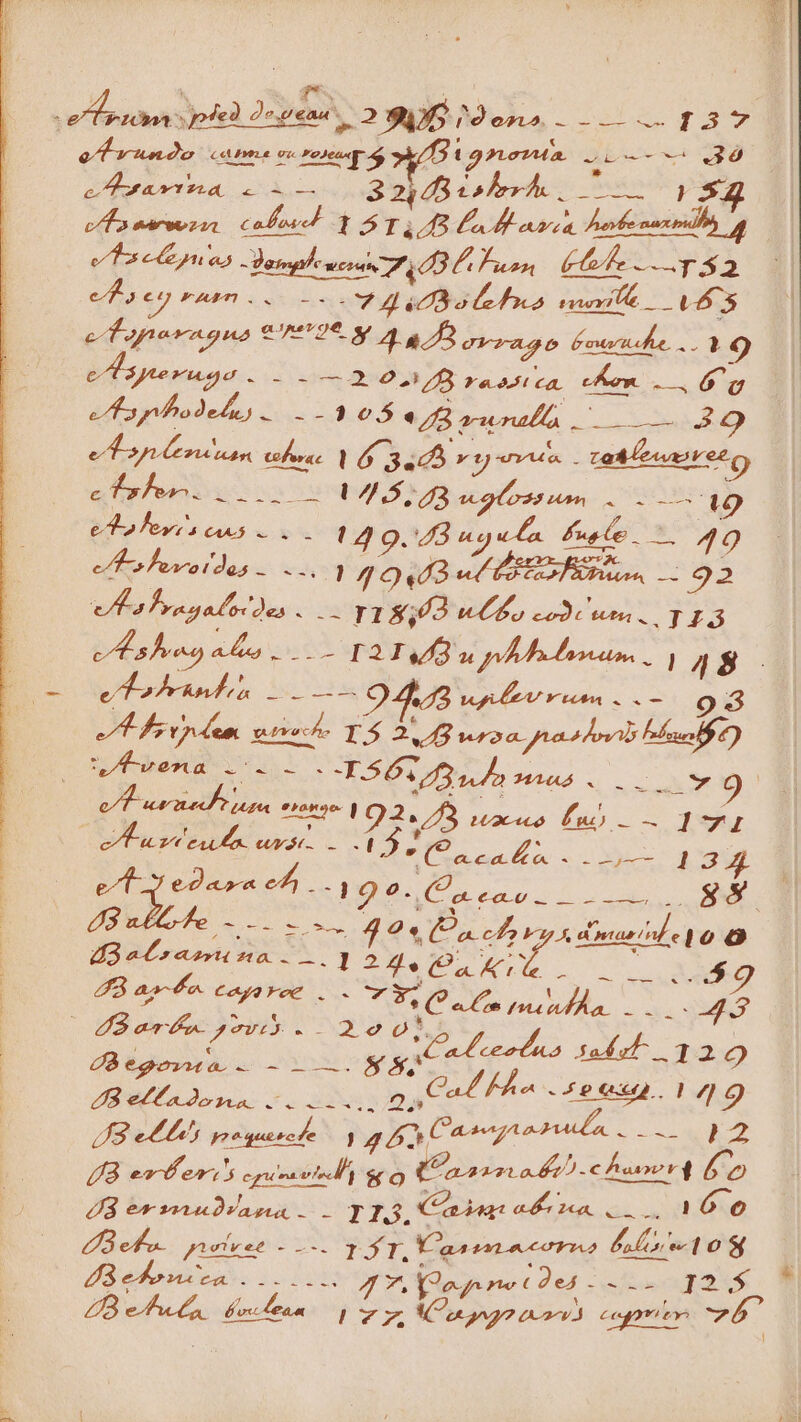 Arum pied de veau 2 Bidens 137
Arundo canne ou roseau Bignonia 30
Asarina 32 Bistorta 154
Asarum cabaret 151 Blattaria herbe aux mittes 4
Asclepias Blitum blete 152
Ascyrum 74 Boletus morille 165
Asparagus asperge 84 Borrago bourache 19
Asperugo 20 Brassica chou 60
Asphodelus 105 Brunella 39
Asplenium 163 Bryonia
Aster 145 Buglossum 19
Asteriscus 149 Bugula bugle 49
Asteroides 149 Bulbocastanum 92
Astragaloides 118 Bulbocodium 113
Astragalus 121 Buphthalmum 148
Astrantia 94 Buplevrum 93
Atriplex arroche 152 Bursa pastoris
Avena 156 Butomus 79
Aurantium orange 192 Buxus buis 171
Auricula ursi 15 Cacalia 134
Azedarach 190 Cacao 88
Ballote 40 Cachrys 100
Balsamina 124 Cakile 59
Barba caprae 78 Calamintha 43
Barba jovis 200
Begonia 88 Calceolus sabot 129
Belladona 2 Caltha souci 149
Bellis paquerete 146 Campanula 12
Berberis epinevinette 80 Cannabis chanvre 60
Bermudiana 113 160
Beta poiree 151 Camnacorus balisier 108
Betonica 47 Capnoides 125
Betula bouleau 177 Capparis caprier 76